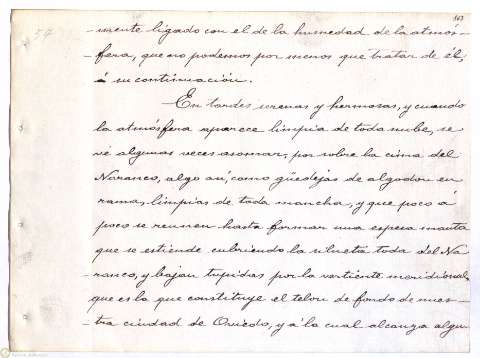 163
-mente ligado con el de la humedad de la atmós-
-fera, que no podemos por menos que tratar de él,
á su continuación.
En tardes serenas y hermosas, y cuando
la atmósfera aparece limpia de toda nube, se
vé algunas veces asomar, por sobre la cima del
Naranco, algo así, como güedejas de algodon en
rama, limpias de toda mancha, y que poco á
poco se reunen hasta formar una espesa manta
que se estiende cubriendo la silueta toda del Na-
ranco, y bajan tupidas por la vertiente meridional,
que es la que constituye el telon de fondo de nues-
-tra ciudad de Oviedo, y á la cual alcanza algu-